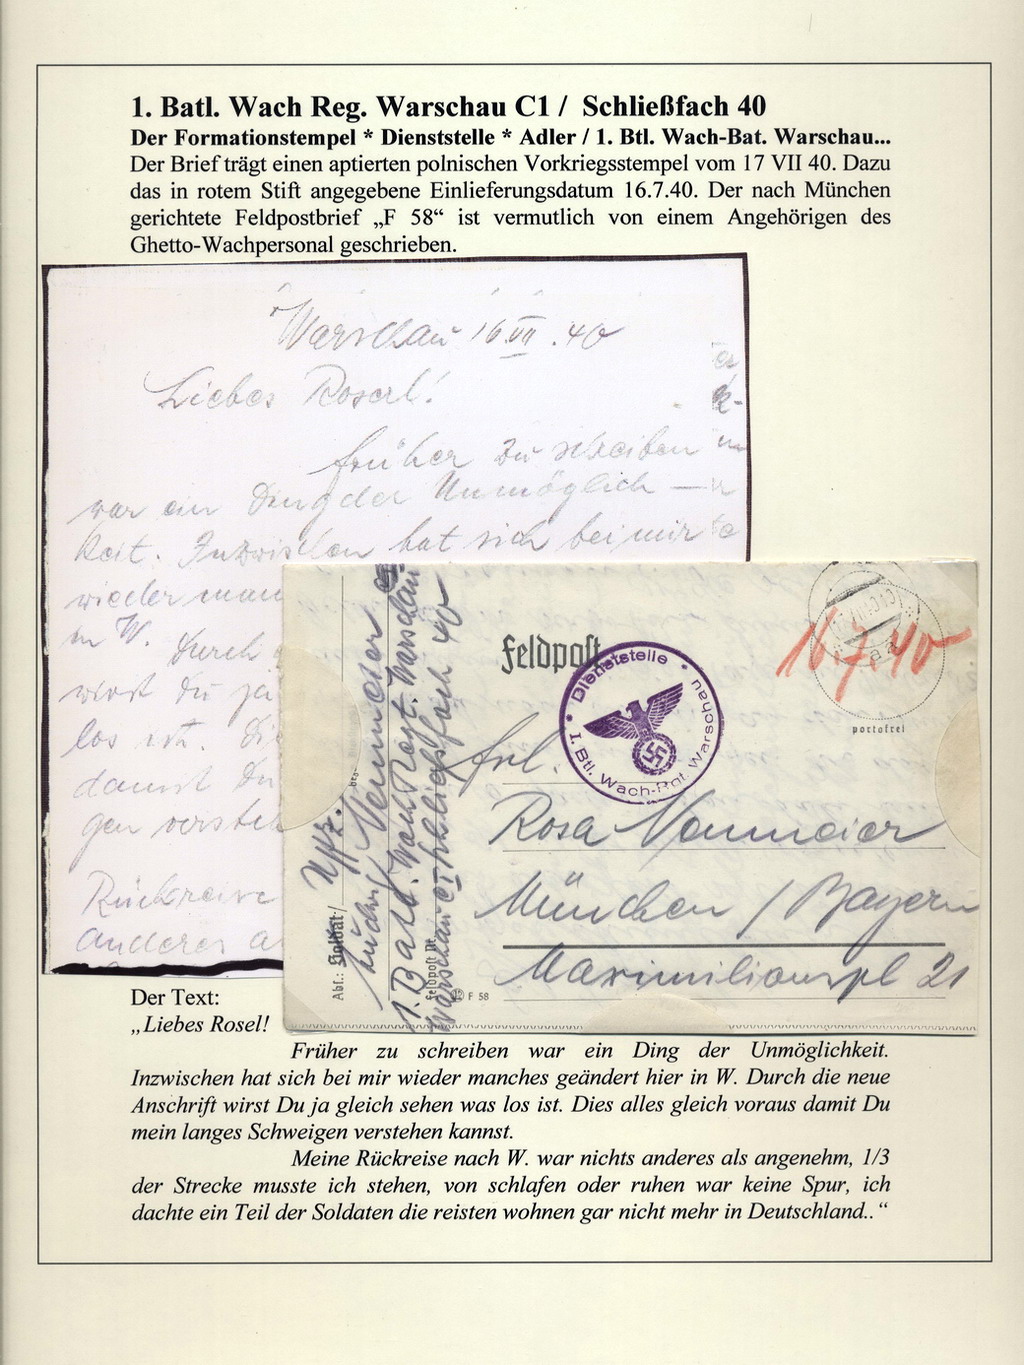 1. Batl. Wach Reg. Warschau C1 / Schließfach 40
Der Formationstempel * Dienststelle * Adler / 1. Btl. Wach-Bat. Warschau...
Der Brief trägt einen aptierten polnischen Vorkriegsstempel vom 17 VII 40. Dazu
das in rotem Stift angegebene Einlieferungsdatum 16.7.40. Der nach München
gerichtete Feldpostbrief „F 58“ ist vermutlich von einem Angehörigen des
Ghetto-Wachpersonal geschrieben.
Warschau 16 VII .40
Liebes Roserl!
früher zu schreiben
war ein Ding der Unmöglich —
keit. Inzwischen hat sich bei mir
wieder man
in W. Durch
wirst Du ja
los ist. Die
damit Du
gen versteh
Rückreise
anderes a
Feldpost
16.7.40
portofrei
Dienststelle
1. Btl. Wach-Rgt. Warschau
Frl.
Rosa Nonnmeier
München / Bayern
Maximilianspl 21
Abs.: Soldat/ Uffz.
Ludwig
1. Batl. Wach Regt. Warschau
Warschau C 1 Schließfach 40
Feldpost Nr.
F 58
Der Text:
„Liebes Rosel!
Früher zu schreiben war ein Ding der Unmöglichkeit.
Inzwischen hat sich bei mir wieder manches geändert hier in W. Durch die neue
Anschrift wirst Du ja gleich sehen was los ist. Dies alles gleich voraus damit Du
mein langes Schweigen verstehen kannst.
Meine Rückreise nach W. war nichts anderes als angenehm, 1/3
der Strecke musste ich stehen, von schlafen oder ruhen war keine Spur, ich
dachte ein Teil der Soldaten die reisten wohnen gar nicht mehr in Deutschland.. “